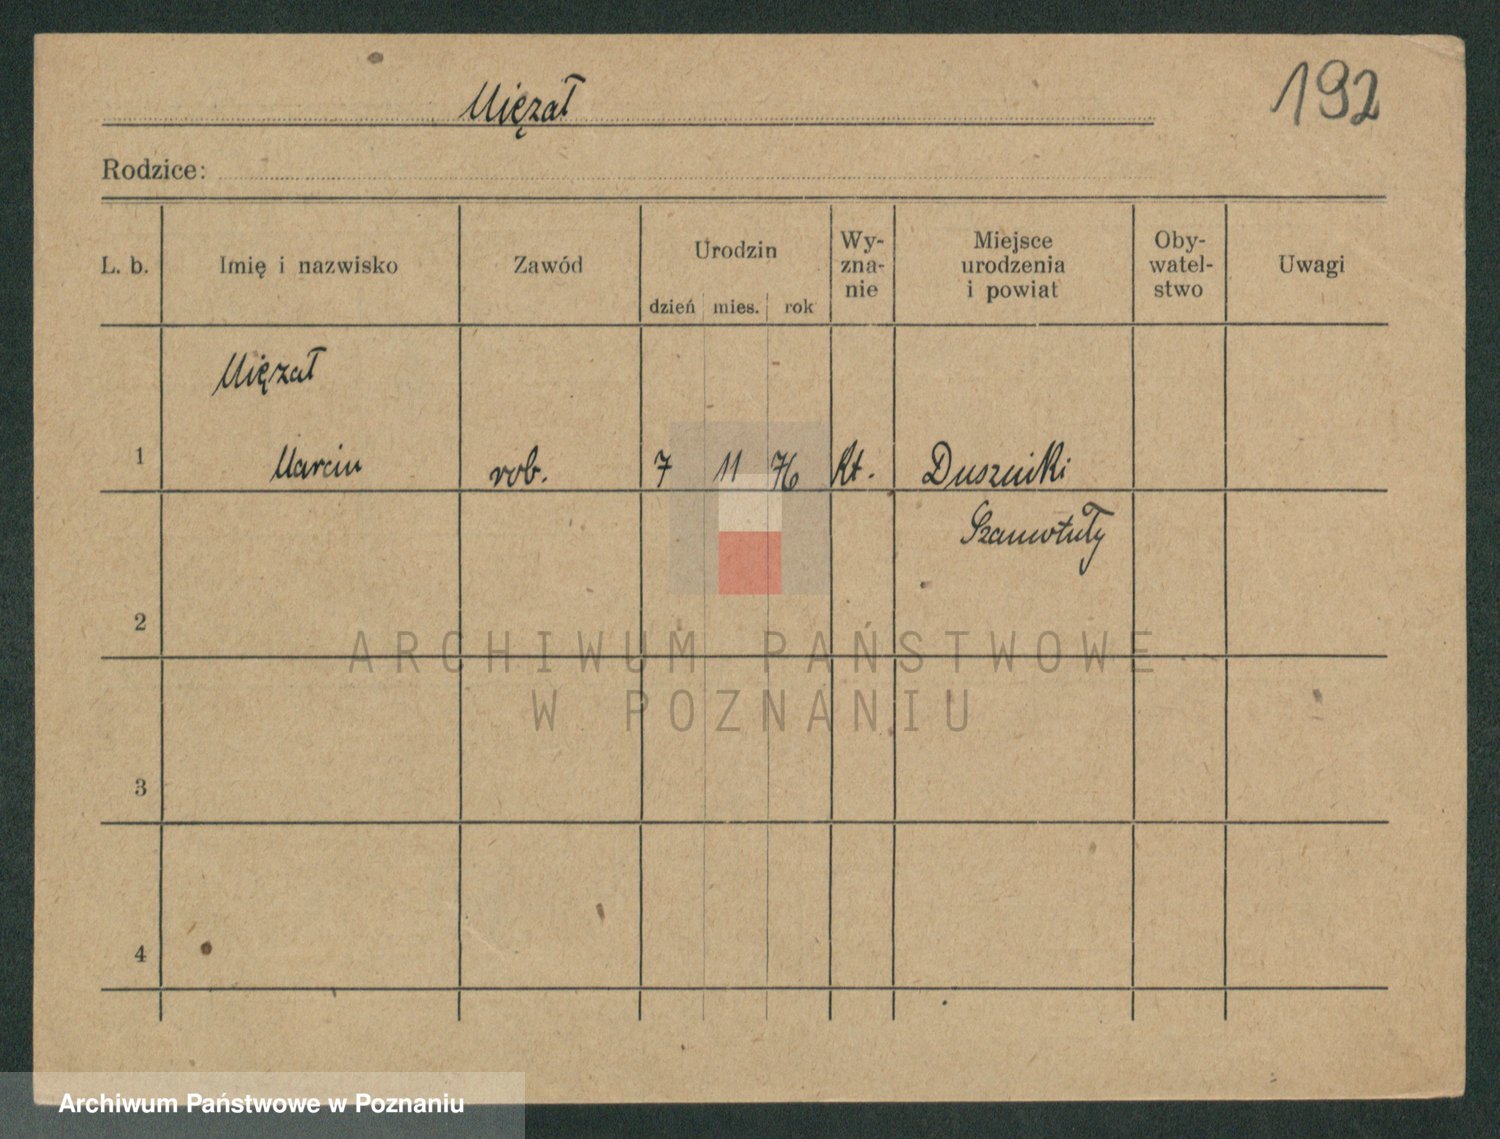 192
Mięzał
Rodzice:
L. b.
Imię i nazwisko
Zawód
Urodzin
dzień mies. rok
Wy-
zna-
nie
Miejsce
urodzenia
i powiat
Oby-
watel-
stwo
Uwagi
Mięzał
1 Marcin rob. 7 11 76 Kt. Duszniki
Szamotuły
2
ARCHIWUM PAŃSTWOWE
W POZNANIU
3
4
Archiwum Państwowe w Poznaniu